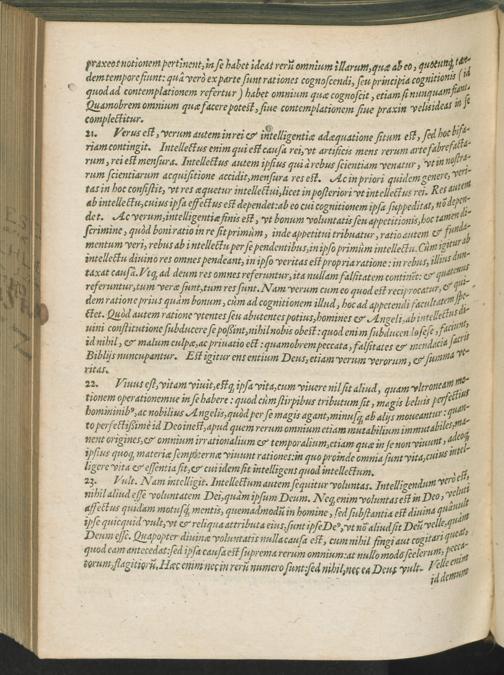 praxeos notionem pertinent, in se habet ideas rerũ omnium illarum, quæ ab eo, quotunq tan-
dem tempore fiunt: quâ verò ex parte sunt rationes cognoscendi, seu principia cognitionis (id
quod ad contemplationem refertur) habet omnium quæ cognoscit, etiam si nunquam fiant.
Quamobrem omnium quæ facere potest, siue contemplationem siue praxin velis ideas in se
complectitur.
21. Verus est, verum autem in rei & intelligentiæ adæquatione situm est, sed hoc bifa-
riam contingit. Intellectus enim qui est causa rei, vt artificis mens rerum arte fabrefacta-
rum, rei est mensura. Intellectus autem ipsius qui à rebus scientiam venatur, vt in nostra-
rum scientiarum acquisitione accidit, mensura res est. Ac in priori quidem genere, veri-
tas in hoc consistit, vt res æquetur intellectui, licet in posteriori vt intellectus rei. Res autem
ab intellectu, cuius ipsa effectus est dependet: ab eo cui cognitionem ipsa suppeditat, nõ depen-
det. Ac verum, intelligentiæ finis est, vt bonum voluntatis seu appetitionis, hoc tamen di-
scrimine, quòd boni ratio in re sit primùm, inde appetitui tribuatur, ratio autem & funda-
mentum veri, rebus ab intellectu per se pendentibus, in ipso primùm intellectu. Cùm igitur ab
intellectu diuino res omnes pendeant, in ipso veritas est propria ratione: in rebus, illius dun-
taxat causâ. Vtq, ad deum res omnes referuntur, ita nullam falsitatem continẽt: & quatenus
referuntur, tum veræ sunt, tum res sunt. Nam verum cum eo quod est reciprocatur, & qui-
dem ratione prius quàm bonum, cùm ad cognitionem illud, hoc ad appetendi facultatem spe-
ctet. Quòd autem ratione vtentes seu abutentes potius, homines & Angeli, ab intellectus di-
uini constitutione subducere se possint, nihil nobis obest: quod enim subducendo sese, faciunt,
id nihil, & malum culpæ, ac priuatio est: quamobrem peccata, falsitates & mendacia sacris
Biblijs nuncupantur. Est igitur ens entium Deus, etiam verum verorum, & summa ve-
ritas.
22. Viuus est, vitam viuit, estq, ipsa vita, cum viuere nil sit aliud, quam vltroneam mo-
tionem operationemue in se habere: quod cùm stirpibus tributum sit, magis beluis perfectius
hominib⁹, ac nobilius Angelis, quòd per se magis agant, minusq, ab alijs moueantur: quan-
to perfectißimè id Deo inest, apud quem rerum omnium etiam mutabilium immutabiles, ma-
nent origines, & omnium irrationalium & temporalium, etiam quæ in se non viuunt, adeoq,
ipsius quoq, materiæ sempiternæ viuunt rationes: in quo proinde omnia sunt vita, cuius intel-
ligere vita & essentia sit, & cui idem sit intelligens quod intellectum.
23. Vult. Nam intelligit. Intellectum autem sequitur voluntas. Intelligendum verò est,
nihil aliud esse voluntatem Dei, quàm ipsum Deum. Neq, enim voluntas est in Deo, veluti
affectus quidam motusq, mentis, quemadmodũ in homine, sed substantia est diuina quâ vult
ipse quicquid vult, vt & reliqua attributa eius, sunt ipse De⁹, vt nõ aliud sit Deũ velle, quàm
Deum esse. Quapopter diuinæ voluntatis nulla causa est, cum nihil fingi aut cogitari queat,
quod eam antecedat: sed ipsa causa est suprema rerum omnium: at nullo modo scelerum, pecca-
torum, flagitiorũ. Hæc enim nec in rerũ numero sunt: sed nihil, nec ea Deus vult. Velle enim
id demum